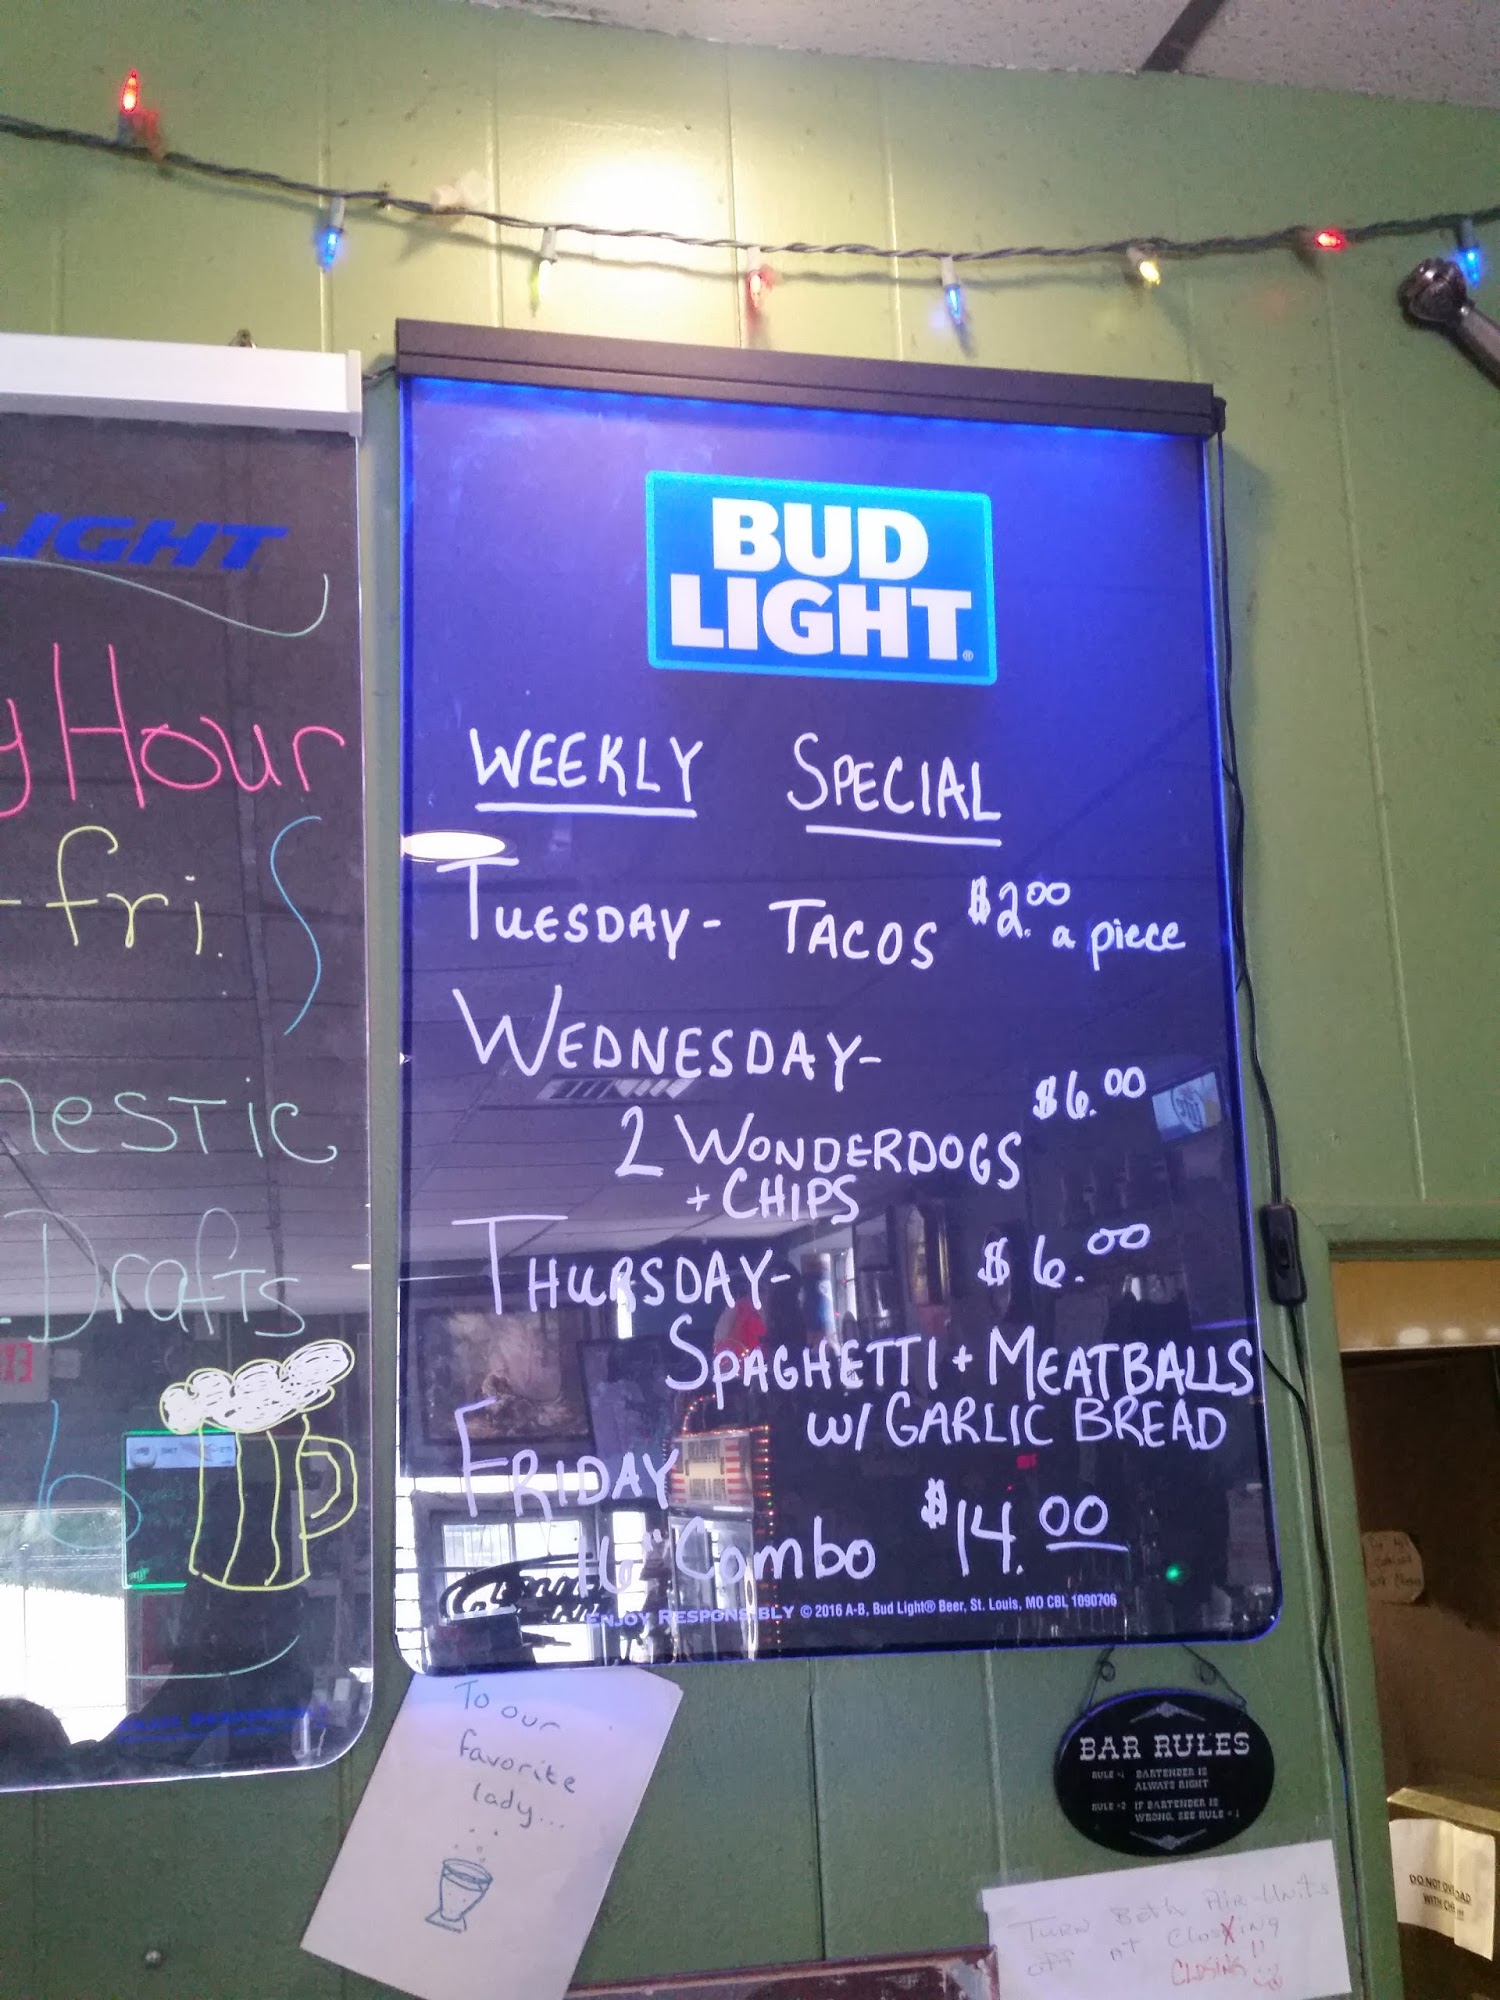 LIGHT
Hour
-fri.
Drafts
BUD
LIGHT®
WEEKLY SPECIAL
TUESDAY- TACOS $2.00 a piece
WEDNESDAY-
$6.00
2 WONDERDOGS
+ CHIPS
THURSDAY- $6.00
SPAGHETTI + MEATBALLS
W/ GARLIC BREAD
FRIDAY
16" COMBO $14.00
ENJOY RESPONSIBLY © 2016 A-B, Bud Light® Beer, St. Louis, MO CBL 1090706
To our
favorite
lady...
BAR RULES
RULE #1 BARTENDER IS
ALWAYS RIGHT
RULE #2 IF BARTENDER IS
WRONG, SEE RULE #1
TURN Both AIR-Units
OFF AT CloXing
CLOSING!!
DO NOT
WITH